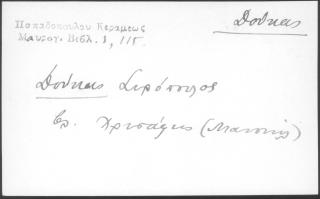 Παπαδοπούλου Κεραμέως
Μαυρογ. Βιβλ. 1, 115.
Δούκας
Δούκας Συρόπουλος
Βλ. Χρυσάφης (Μανουήλ)